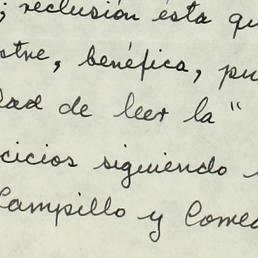 ; reclusión ésta qu
stre, benéfica, pu
dad de leer la "
cicios siguiendo
Campillo y Comed